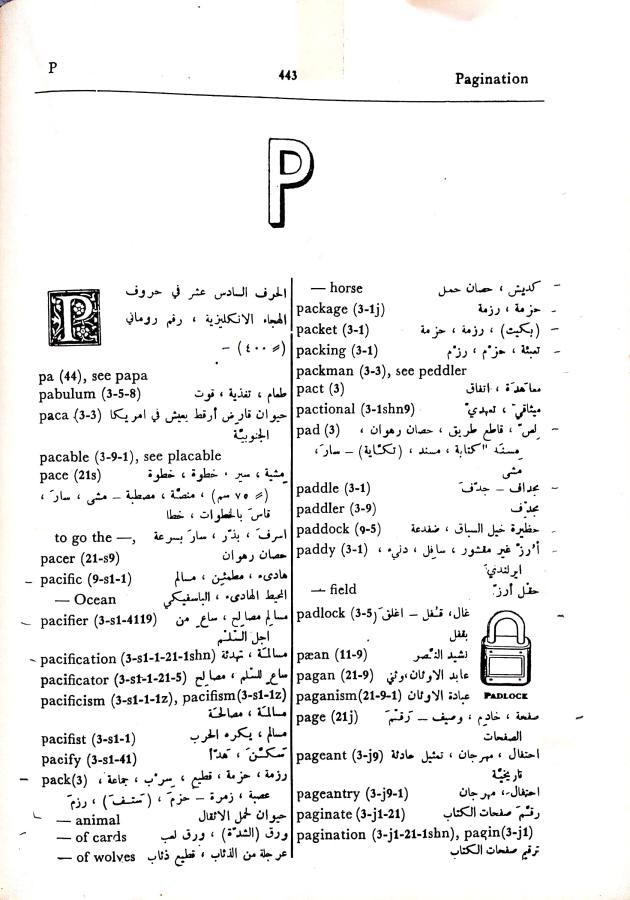 P
443
Pagination
P
P
الحرف السادس عشر في حروف
الهجاء الانكليزية ، رقم روماني
(= ٤٠٠) –
pa (44), see papa
pabulum (3-5-8) طعام ، تغذية ، قوت
paca (3-3) حيوان قارض أرقط يعيش في امريكا
الجنوبيّة
pacable (3-9-1), see placable
pace (21s) مِشية ، سير ، خطوة ، خطوة
(= ٧٥ سم) ، منصّة ، مصطبة – مشى ، سارَ ،
قاسَ بالخطوات ، خطا
to go the —, اسرفَ ، بذّر ، سارَ بسرعة
pacer (21-s9) حصان رهوان
pacific (9-s1-1) هادىء ، مطمئِن ، مسالم
— Ocean المحيط الهادىء ، الباسفيكي
pacifier (3-s1-4119) مسالِم مصالِح ، ساعٍ من
اجل السّلم
pacification (3-s1-1-21-1shn) مسالمة ، تهدئة
pacificator (3-s1-1-21-5) ساعٍ للسّلم ، مصالِح
pacificism (3-s1-1-1z), pacifism(3-s1-1z)
مسالمة ، مصالحة
pacifist (3-s1-1) مسالم ، يكره الحرب
pacify (3-s1-41) سكّنَ ، هدّأ
pack(3) رزمة ، حزمة ، قطيع ، سِرْب ، جماعة ،
عصبة ، زمرة – حزمَ ، (ستّفَ) ، رزمَ
— animal حيوان لحمل الاثقال
— of cards ورق (الشدّة) ، ورق لعب
— of wolves عرجلة من الذئاب ، قطيع ذئاب
— horse كديش ، حصان حمل
package (3-1j) حزمة ، رزمة
packet (3-1) (بكيت) ، رزمة ، حزمة
packing (3-1) تعبئة ، حزْم ، رزْم
packman (3-3), see peddler
pact (3) معاهَدة ، اتفاق
pactional (3-1shn9) ميثاقيّ ، تعهديّ
pad (3) لِصّ ، قاطع طريق ، حصان رهوان ،
مِسنَدة كتابة ، مسند ، (تكّاية) – سارَ ،
مشى
paddle (3-1) مجداف – جدّفَ
paddler (3-9) مجدّف
paddock (9-5) حظيرة خيل السباق ، ضفدعة
paddy (3-1) أرزّ غير مقشور ، سافِل ، دنيء ،
ايرلنديّ
— field حقل أرز
padlock (3-5) غال، قفل – اغلقَ
بقفل
PADLOCK
pæan (11-9) نشيد النّصر
pagan (21-9) عابد الاوثان، وثني
paganism(21-9-1) عبادة الاوثان
page (21j) صفحة ، خادِم ، وصيف – رقّمَ
الصفحات
pageant (3-j9) احتفال ، مهرجان ، تمثيل حادثة
تاريخيّة
pageantry (3-j9-1) احتفال، مهرجان
paginate (3-j1-21) رقّمَ صفحات الكتاب
pagination (3-j1-21-1shn), pagin(3-j1)
ترقيم صفحات الكتاب